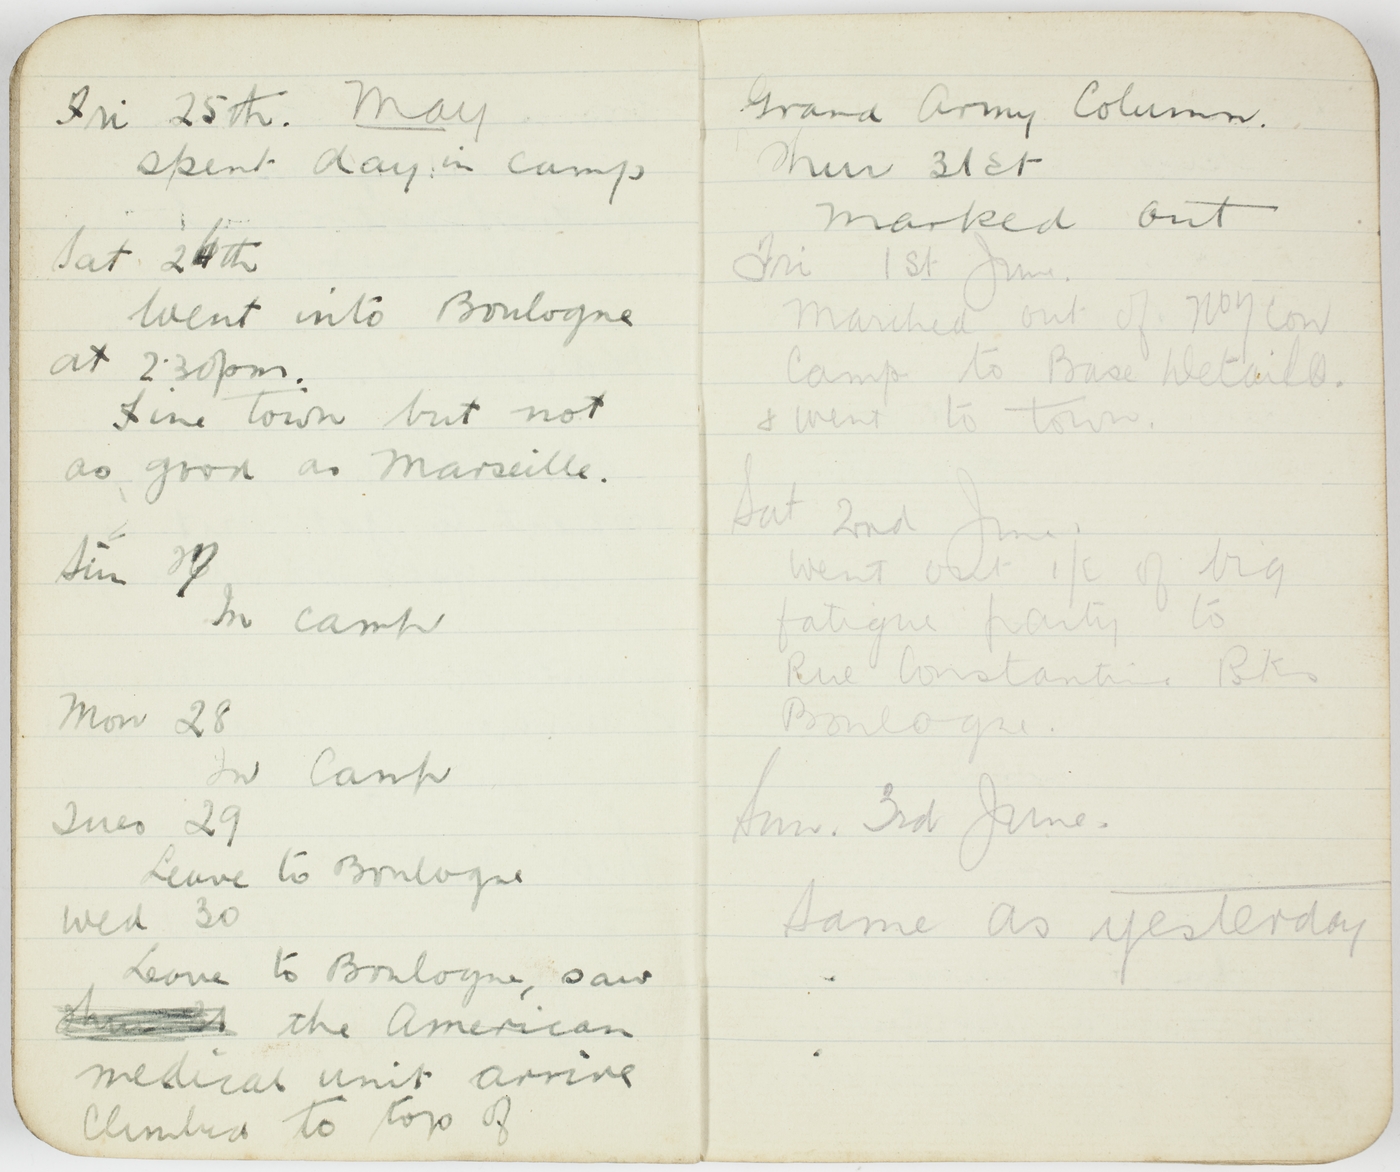 Fri 25th. May
spent day in camp
Sat 26th
Went into Boulogne
at 2.30pm.
Fine town but not
as good as Marseille.
Sun 27
In camp
Mon 28
In Camp
Tues 29
Leave to Boulogne
Wed 30
Leave to Boulogne, saw
the American
medical unit arrive
Climbed to top of
Grand Army Column.
Thur 31st
Marked out
Fri 1st June.
Marched out of
Camp to Base Details.
& went to town.
Sat 2nd June.
Went out i/c of big
fatigue party to
Rue Constantine Bks
Boulogne.
Sun. 3rd June.
Same as yesterday